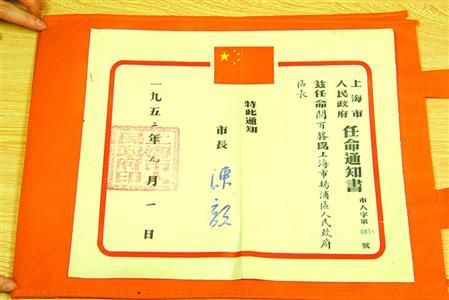 上海市
人民政府
任命通知書
市人字第 號
茲任命關百勝爲上海市楊浦區人民政府
區長
特此通知
市長 陳毅
一九五二年九月一日